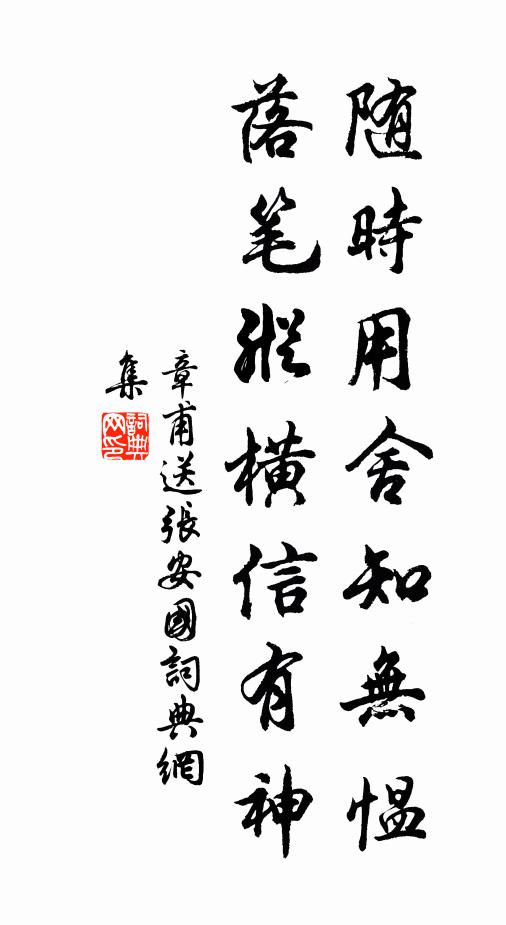 随時用舍知無愠
落笔縱橫信有神
章甫送張安國詞典網
集
詞典
网印